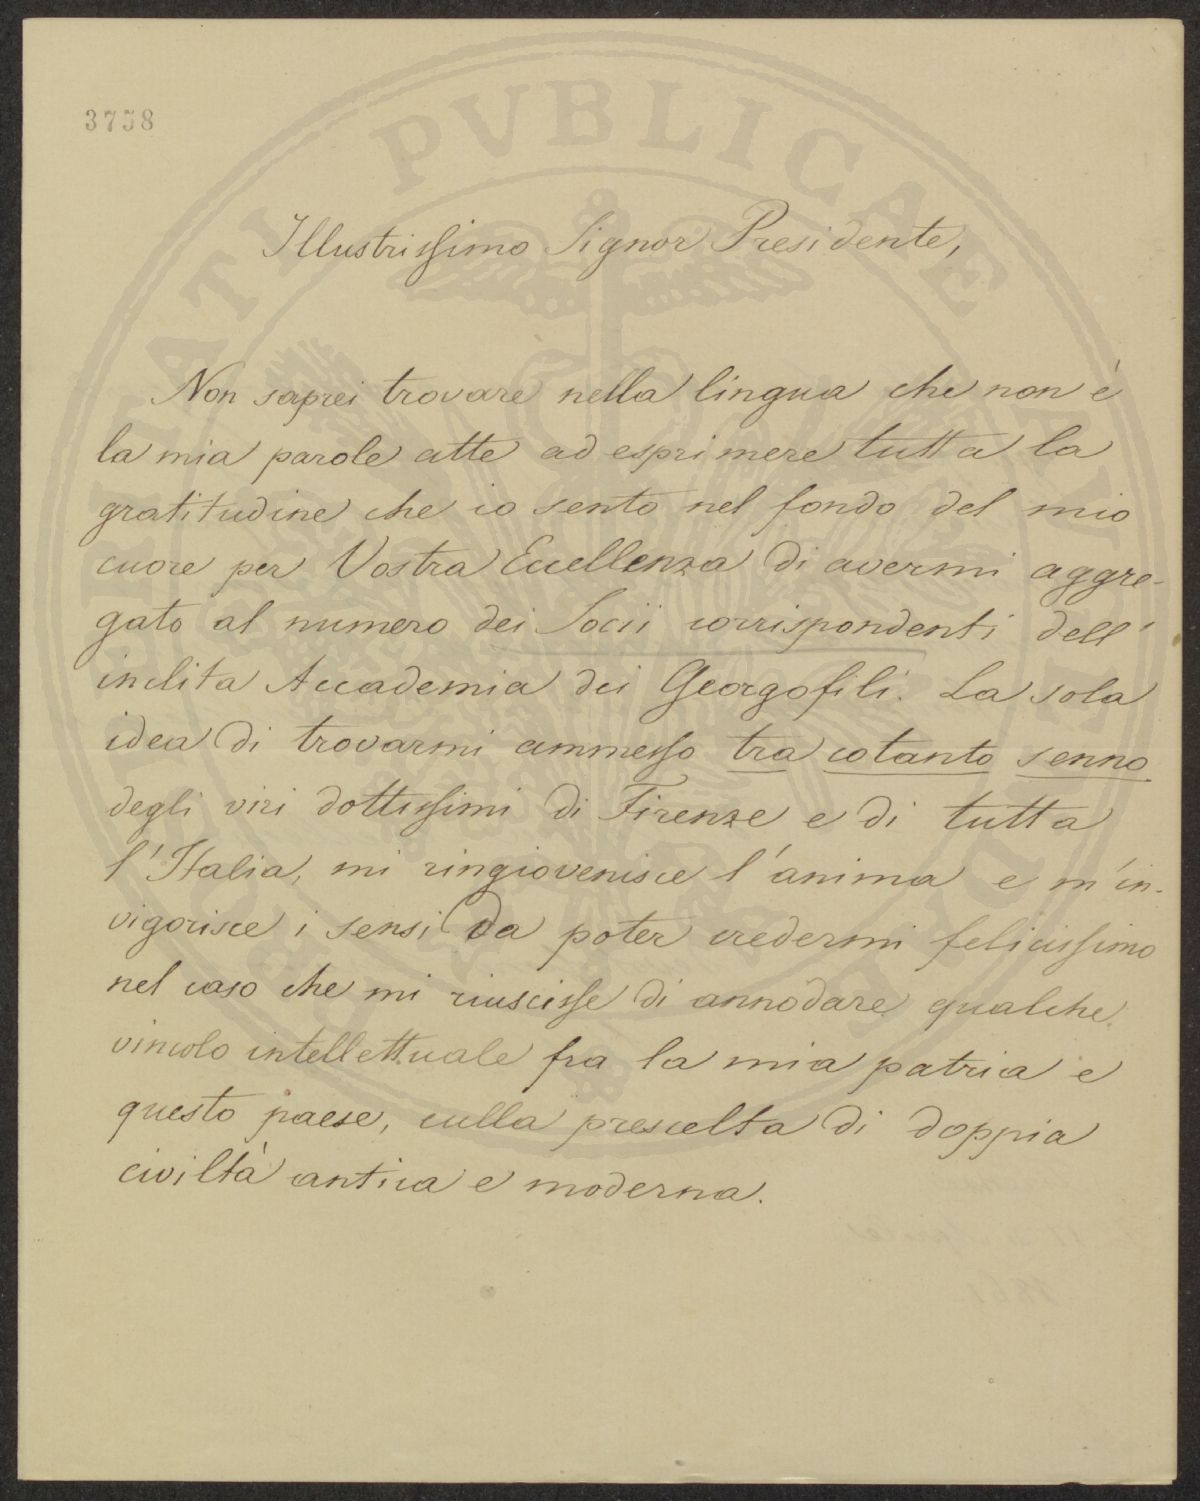 3758
PROSPERITATI PVBLICAE AVGENDAE
Illustrissimo Signor Presidente,
Non saprei trovare nella lingua che non è
la mia parole atte ad esprimere tutta la
gratitudine che io sento nel fondo del mio
cuore per Vostra Eccellenza di avermi aggre-
gato al numero dei Socii corrispondenti dell'
inclita Accademia dei Georgofili. La sola
idea di trovarmi ammesso tra cotanto senno
degli viri dottissimi di Firenze e di tutta
l'Italia, mi ringiovenisce l'anima e m'in-
vigorisce i sensi da poter credermi felicissimo
nel caso che mi riuscisse di annodare qualche
vincolo intellettuale fra la mia patria e
questo paese, culla prescelta di doppia
civiltà antica e moderna.